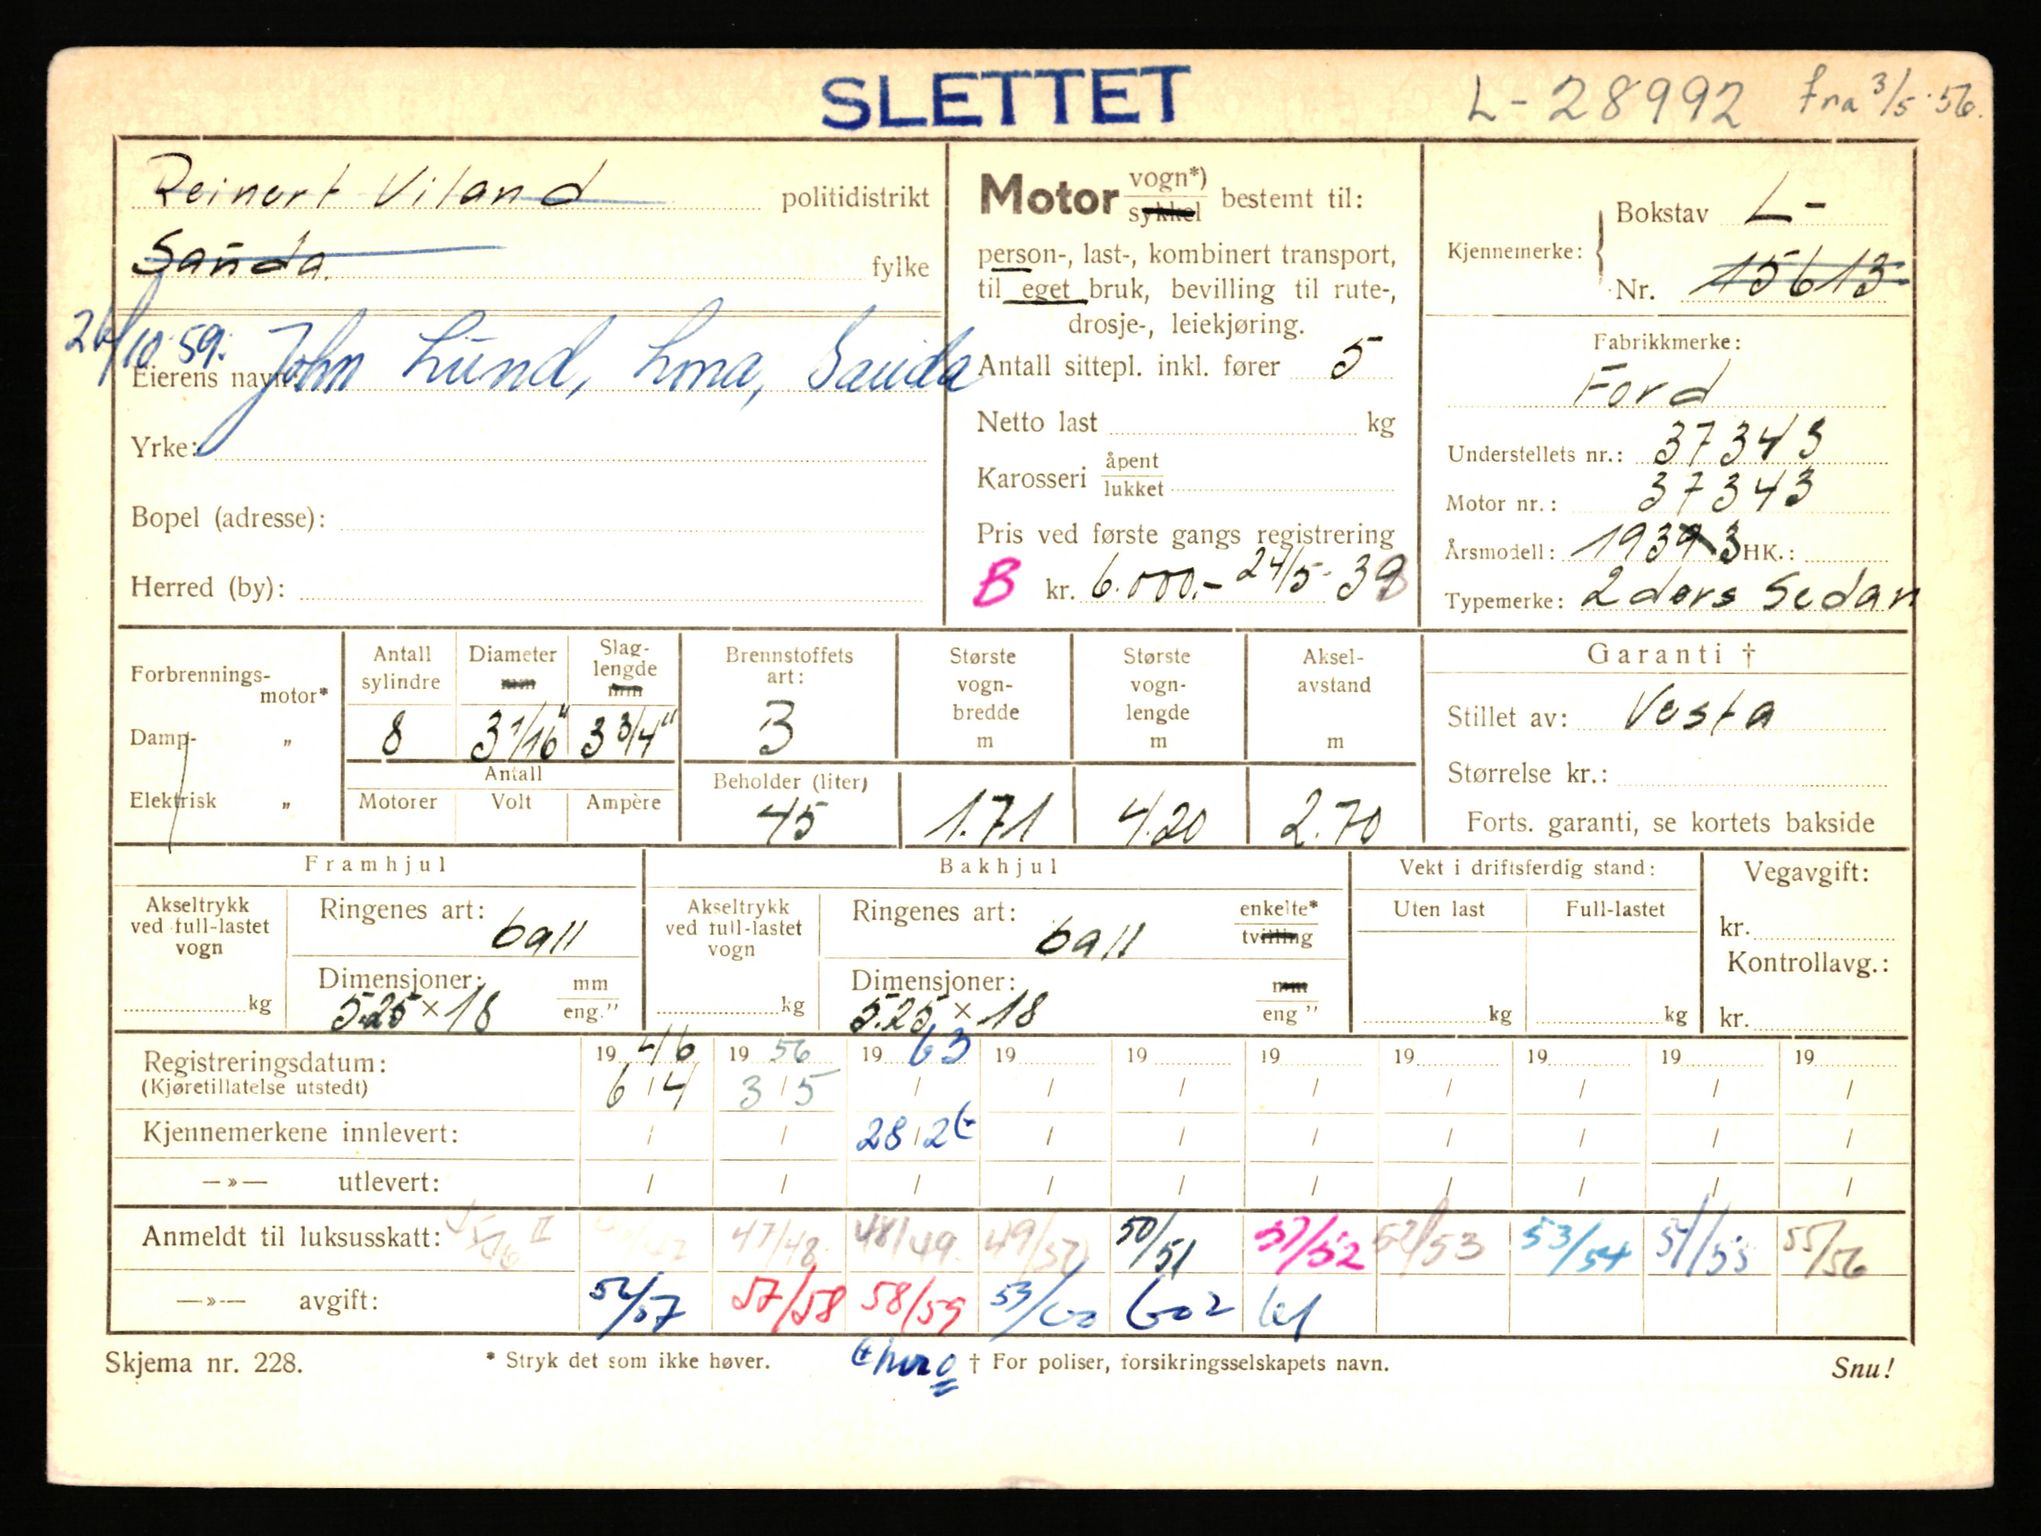 SLETTET
L-28992 fra 3/5-56.
Reinert Viland politidistrikt
Sauda. fylke
26/10 59. John Lund, Lona, Sauda
Eierens navn:
Yrke:
Bopel (adresse):
Herred (by):
Motor vogn*) sykkel bestemt til:
person-, last-, kombinert transport,
til eget bruk, bevilling til rute-,
drosje-, leiekjøring.
Antall sittepl. inkl. fører 5
Netto last kg
Karosseri åpent lukket
Pris ved første gangs registrering
B kr. 6.000.- 24/5-38
Kjennemerke: Bokstav L-
Nr. 15613
Fabrikkmerke:
Ford
Understellets nr.: 37343
Motor nr.: 37343
Årsmodell: 1933 HK.:
Typemerke: 2dørs Sedan
Forbrennings-motor*
Damp- „
Elektrisk „
Antall sylindre 8
Diameter mm 3 1/16"
Slag-lengde mm 3 3/4"
Antall
Motorer Volt Ampère
Brennstoffets art: 3
Beholder (liter) 45
Største vogn-bredde m 1.71
Største vogn-lengde m 4.20
Aksel-avstand m 2.70
Garanti †
Stillet av: Vesta
Størrelse kr.:
Forts. garanti, se kortets bakside
Framhjul
Akseltrykk ved full-lastet vogn kg
Ringenes art: ball
Dimensjoner: 5.25 × 18 mm eng."
Bakhjul
Akseltrykk ved full-lastet vogn kg
Ringenes art: ball enkelte* tvilling
Dimensjoner: 5.25 × 18 mm eng "
Vekt i driftsferdig stand:
Uten last Full-lastet
kg kg
Vegavgift:
kr.
Kontrollavg.:
kr.
Registreringsdatum: 1946 1956 1963 19 19 19 19 19 19 19
(Kjøretillatelse utstedt) 6/4 3/5 / / / / / / / /
Kjennemerkene innlevert: / / 28/2 / / / / / / /
—»— utlevert: / / / / / / / / / /
Anmeldt til luksusskatt: 47/48 48/49 49/50 50/51 51/52 52/53 53/54 54/55 55/56
—»— avgift: 56/57 57/58 58/59 59/60 602 61
Skjema nr. 228. * Stryk det som ikke høver. † For poliser, forsikringsselskapets navn. Snu!